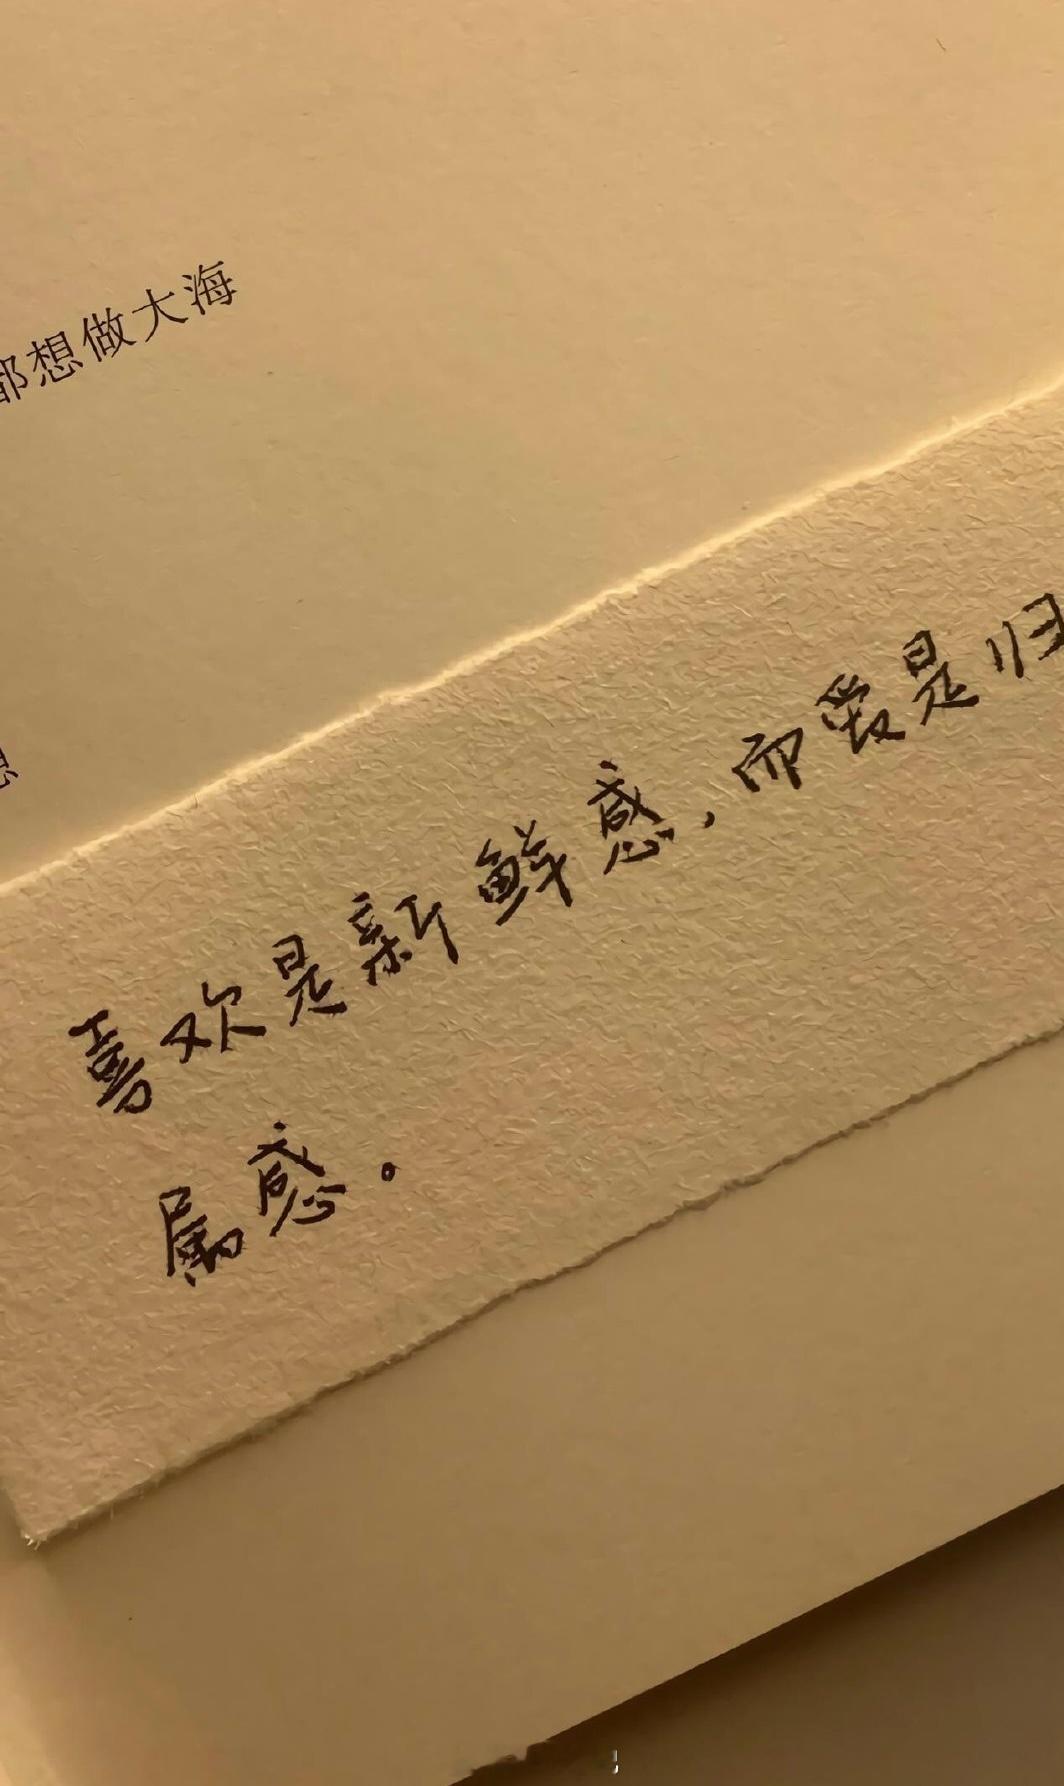 都想做大海
想
喜欢是新鲜感，而爱是归
属感。